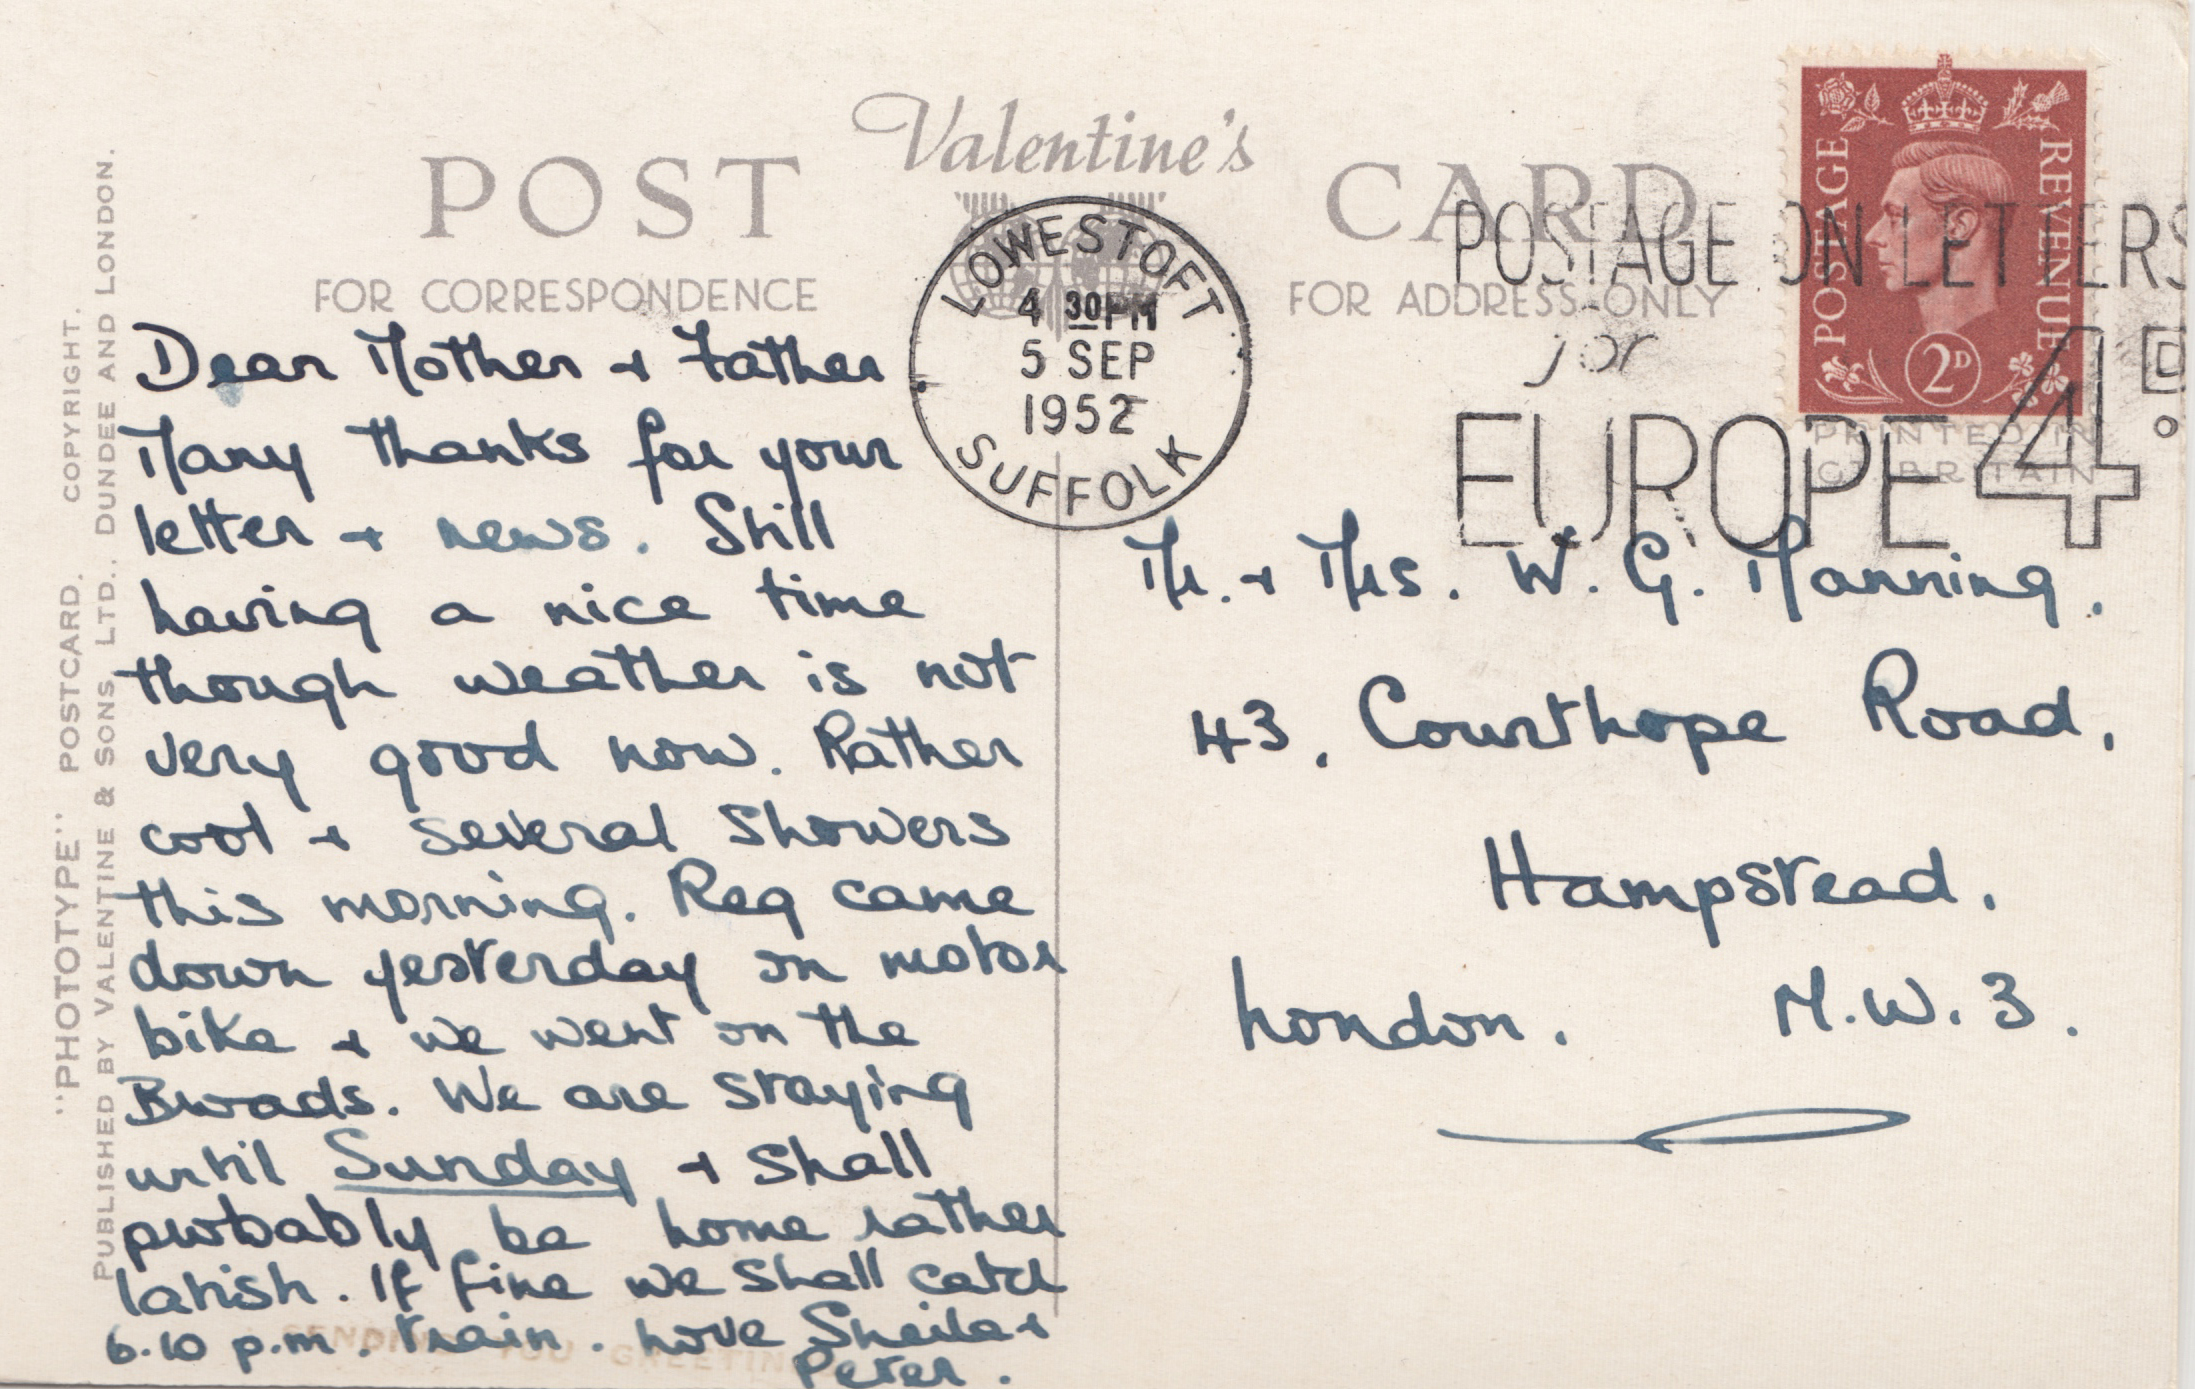 Valentine's
POST CARD
FOR CORRESPONDENCE
FOR ADDRESS ONLY
"PHOTOTYPE" POSTCARD. COPYRIGHT.
PUBLISHED BY VALENTINE & SONS, LTD., DUNDEE AND LONDON.
LOWESTOFT
4 30PM
5 SEP
1952
SUFFOLK
POSTAGE ON LETTERS
for
EUROPE 4D.
POSTAGE
REVENUE
2D
PRINTED IN
GT BRITAIN
Dear Mother + Father.
Many thanks for your
letter + news. Still
having a nice time
though weather is not
very good now. Rather
cool + several showers
this morning. Reg came
down yesterday on motor
bike + we went on the
Broads. We are staying
until Sunday + shall
probably be home rather
latish. If fine we shall catch
6.10 p.m. train. Love Sheila +
Peter.
SENDING YOU GREETIN
Mr. + Mrs. W. G. Manning.
43, Courthope Road,
Hampstead.
London. N.W.3.